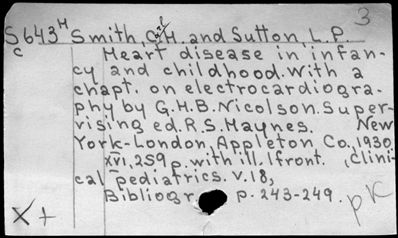 3
S643H Smith, C.H. and Sutton, L.P.
c Heart disease in infan-
cy and childhood. With a
chapt. on electrocardiogra-
phy by G.H.B. Nicolson. Super-
vising ed. R.S. Haynes. New
York-London, Appleton Co., 1930
xvi, 259 p. with ill., 1 front. (Clini-
cal pediatrics. v. 18,
Bibliogr p. 243-249.
X+ pK